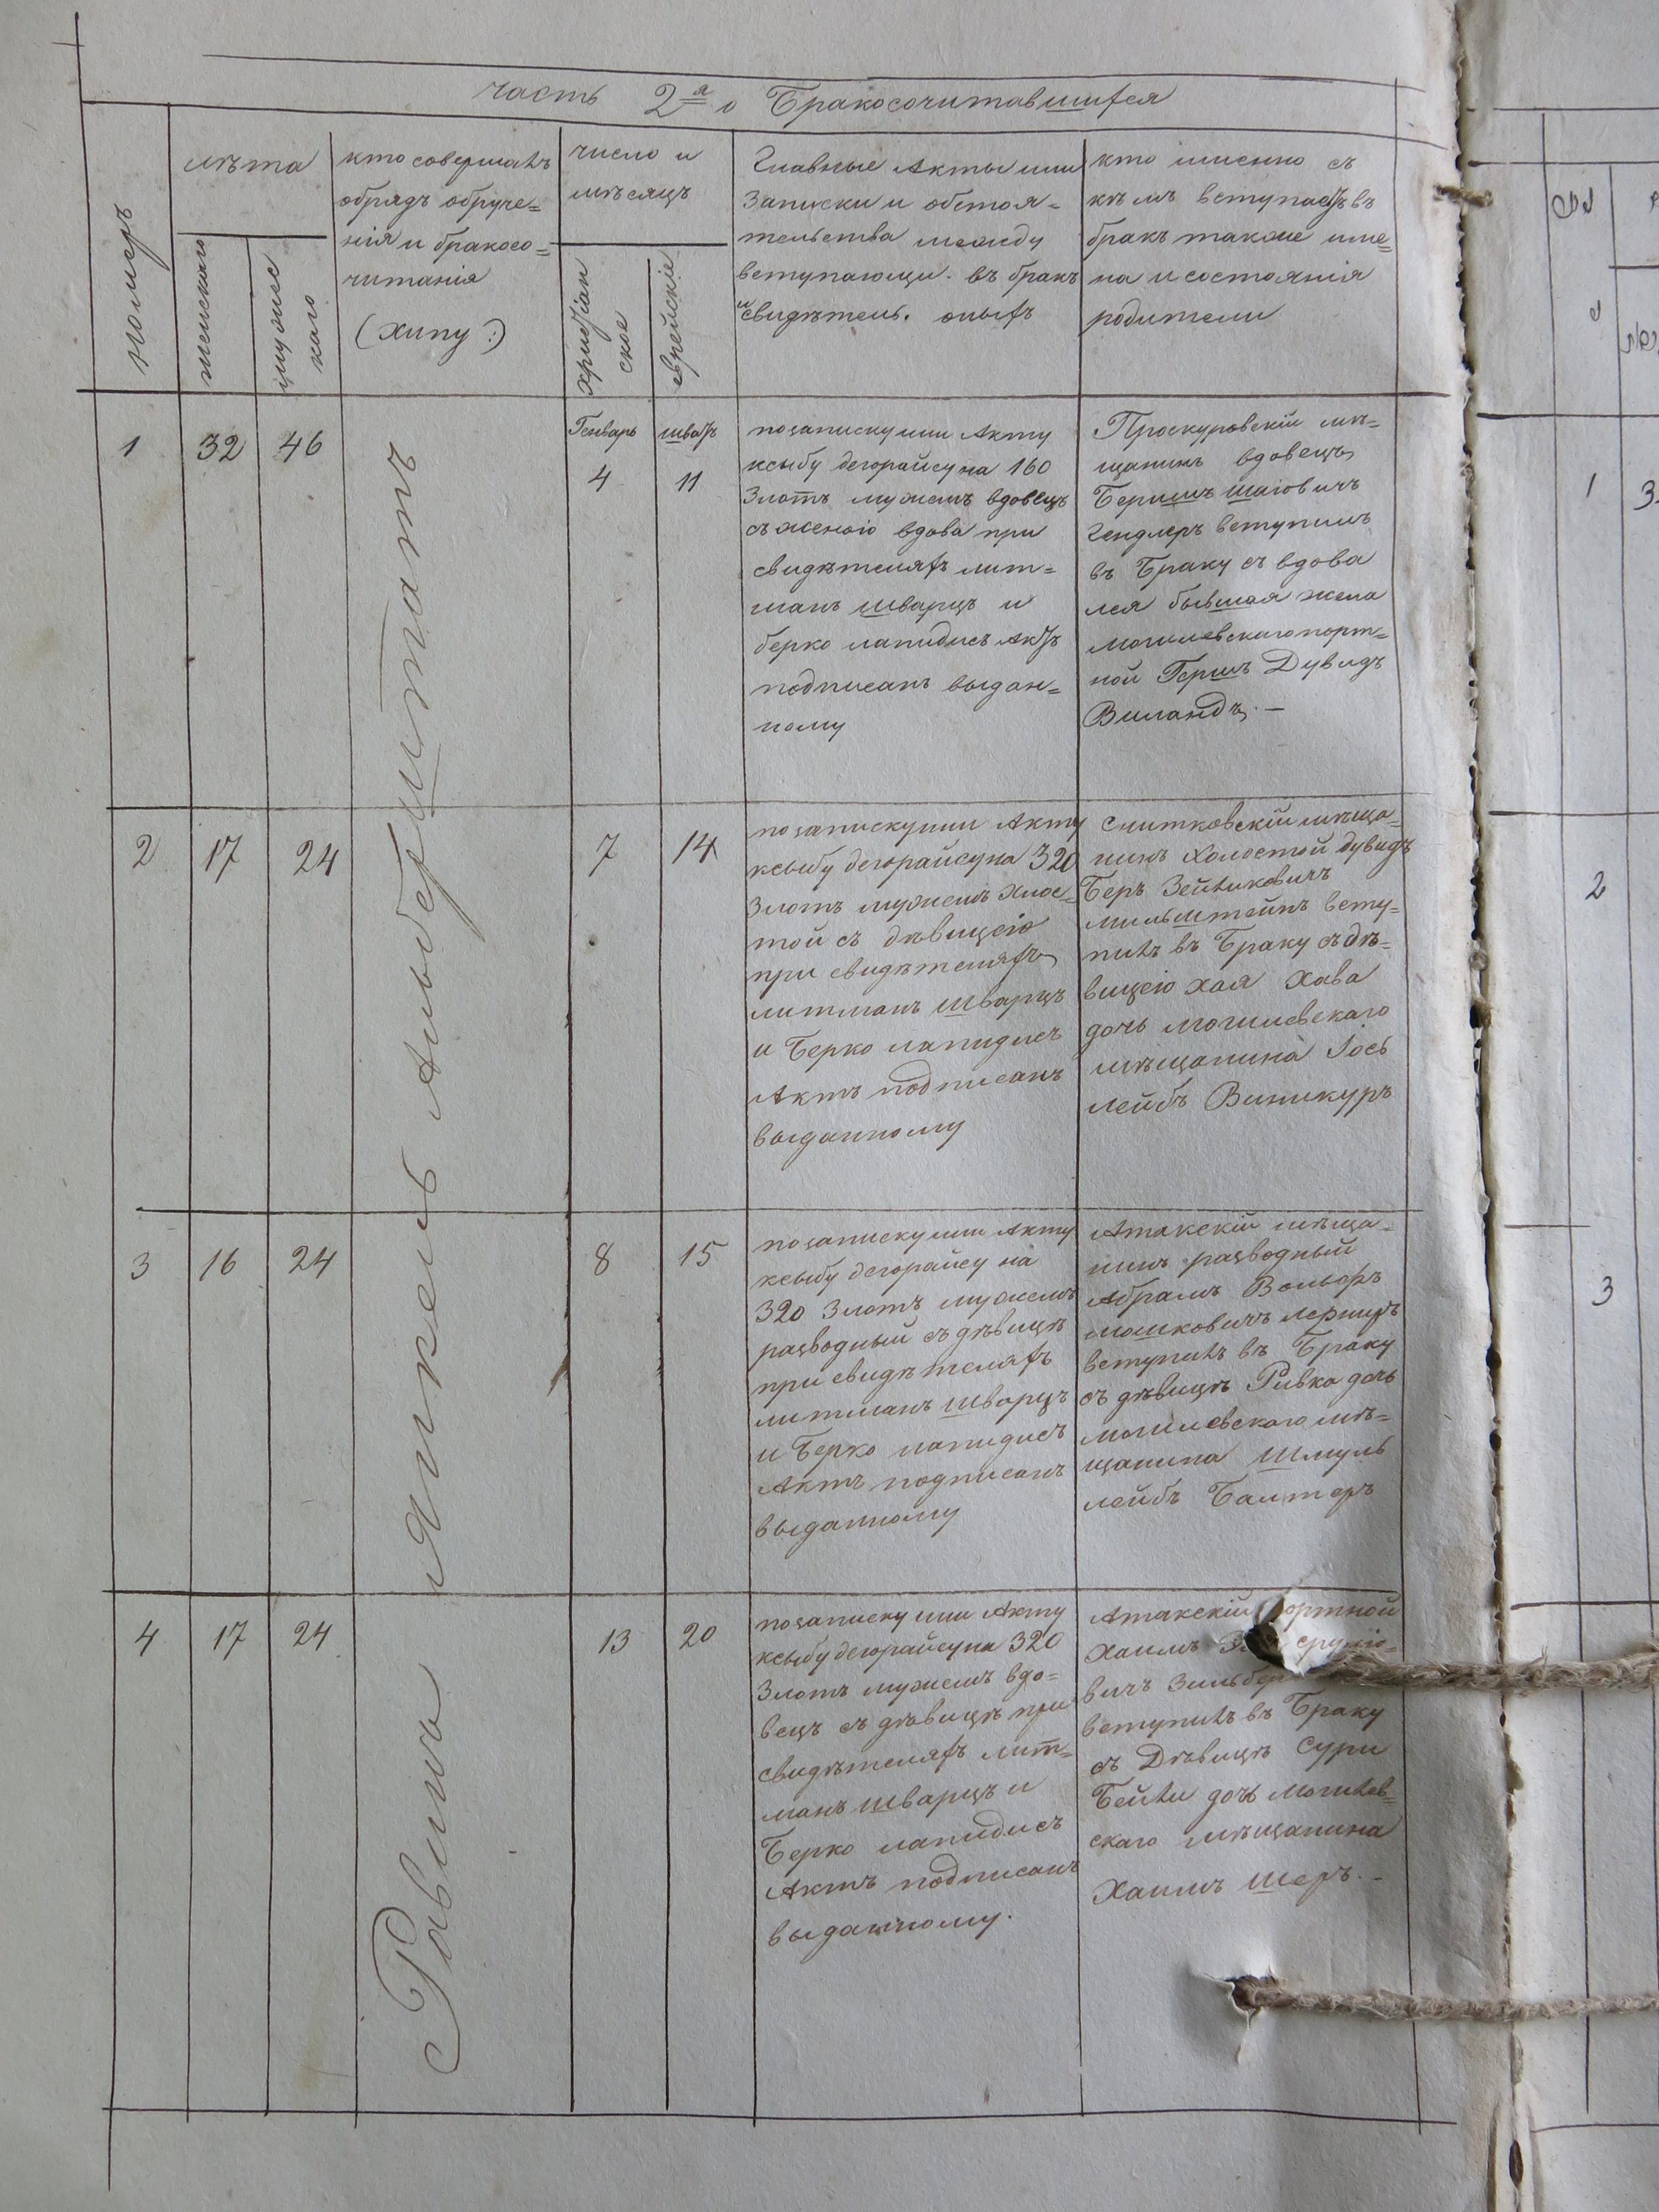 часть 2я о Бракосочитавшихся
номеръ
лѣта
женскаго
мужес
каго
кто совершалъ
обрядъ обруче=
нія и бракосо=
читанія
(хипу:)
число и
мѣсяцъ
христіан
ское
еврейскіе
Главные Акты или
Записки и обстоя=
тельства между
вступающи. въ бракъ
и свидѣтель. оныхъ
кто имено съ
кѣмъ вступаетъ въ
бракъ также име=
на и состоянія
родители
Равинъ Янкель Альберштатъ
1
32
46
Генварь
4
шватъ
11
позаписку или Акту
ксыбу деюрайсу на 160
Злотъ мужемъ вдовецъ
съ женою вдова при
свидѣтеляхъ лит=
манъ шварцъ и
берко лапидисъ Актъ
подписанъ выдан=
ному
Проскуровскій мѣ=
щанинъ вдовецъ
Беришъ шаговичъ
Гендлеръ вступилъ
въ Браку съ вдова
лея бывшая жена
могилевскаго порт=
ной Гершъ Дувидъ
Виландъ. —
2
17
24
7
14
позаписку или Акту
ксыбу деюрайсу на 320
Злотъ мужемъ Хлос=
той съ дѣвицею
при свидѣтеляхъ
литманъ шварцъ
и Берко лапидисъ
Актъ подписанъ
выданному
Снитковскій мѣща=
нинъ Холостой Дувидъ
Беръ Зейликовичъ
мильштейнъ всту=
пилъ въ Браку съ дѣ=
вицею Хая Хава
дочь могилевскаго
мѣщанина Іось
лейбъ Виникуръ
3
16
24
8
15
позаписку или Акту
ксыбу деюрайсу на
320 Злотъ мужемъ
разводный съ дѣвицѣ
при свидѣтеляхъ
литманъ шварцъ
и Берко лапидисъ
Актъ подписанъ
выданному
Атакскій мѣща=
нинъ разводный
Абрамъ Вольфъ
мошковичъ лернеръ
вступилъ въ Браку
съ дѣвицѣ Ривка дочь
могилевскаго мѣ=
щанина Шмуль
лейбъ Балтеръ
4
17
24
13
20
позаписку или Акту
ксыбу деюрайсу на 320
Злотъ мужемъ вдо=
вецъ съ дѣвицѣ при
свидѣтеляхъ лит=
манъ шварцъ и
Берко лапидисъ
Актъ подписанъ
выданному.
Атакскій портной
Хаимъ срулю=
вичъ Зильбер
вступилъ въ Браку
съ Дѣвицѣ Сури
Бейли дочь могилев=
скаго мѣщанина
Хаимъ Шеръ. —
1
2
3